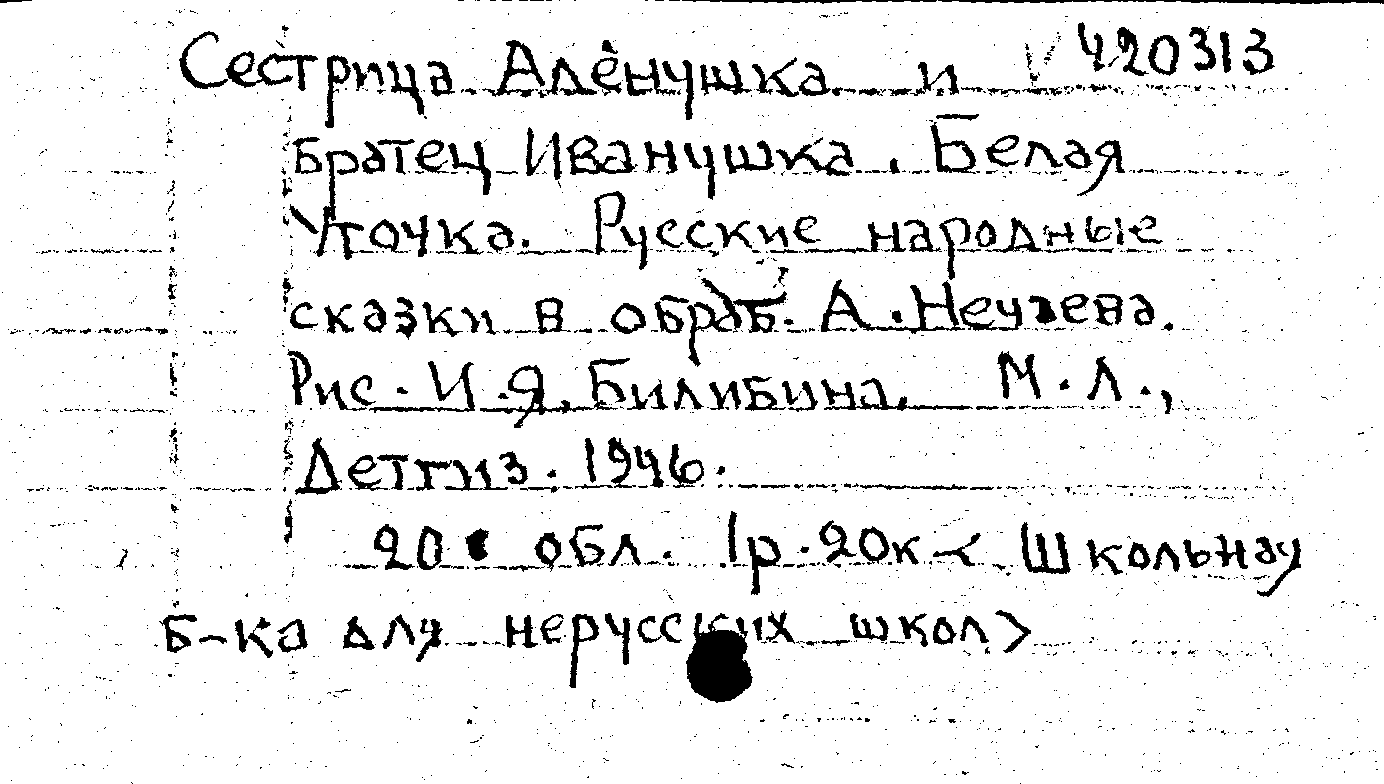 Сестрица Алёнушка и V 420313
братец Иванушка. Белая
Уточка. Русские народные
сказки в обраб. А. Нечаева.
Рис. И. Я. Билибина. М. Л.,
Детгиз. 1946.
20 с обл. 1р. 20к < Школьная
б-ка для нерусских школ>